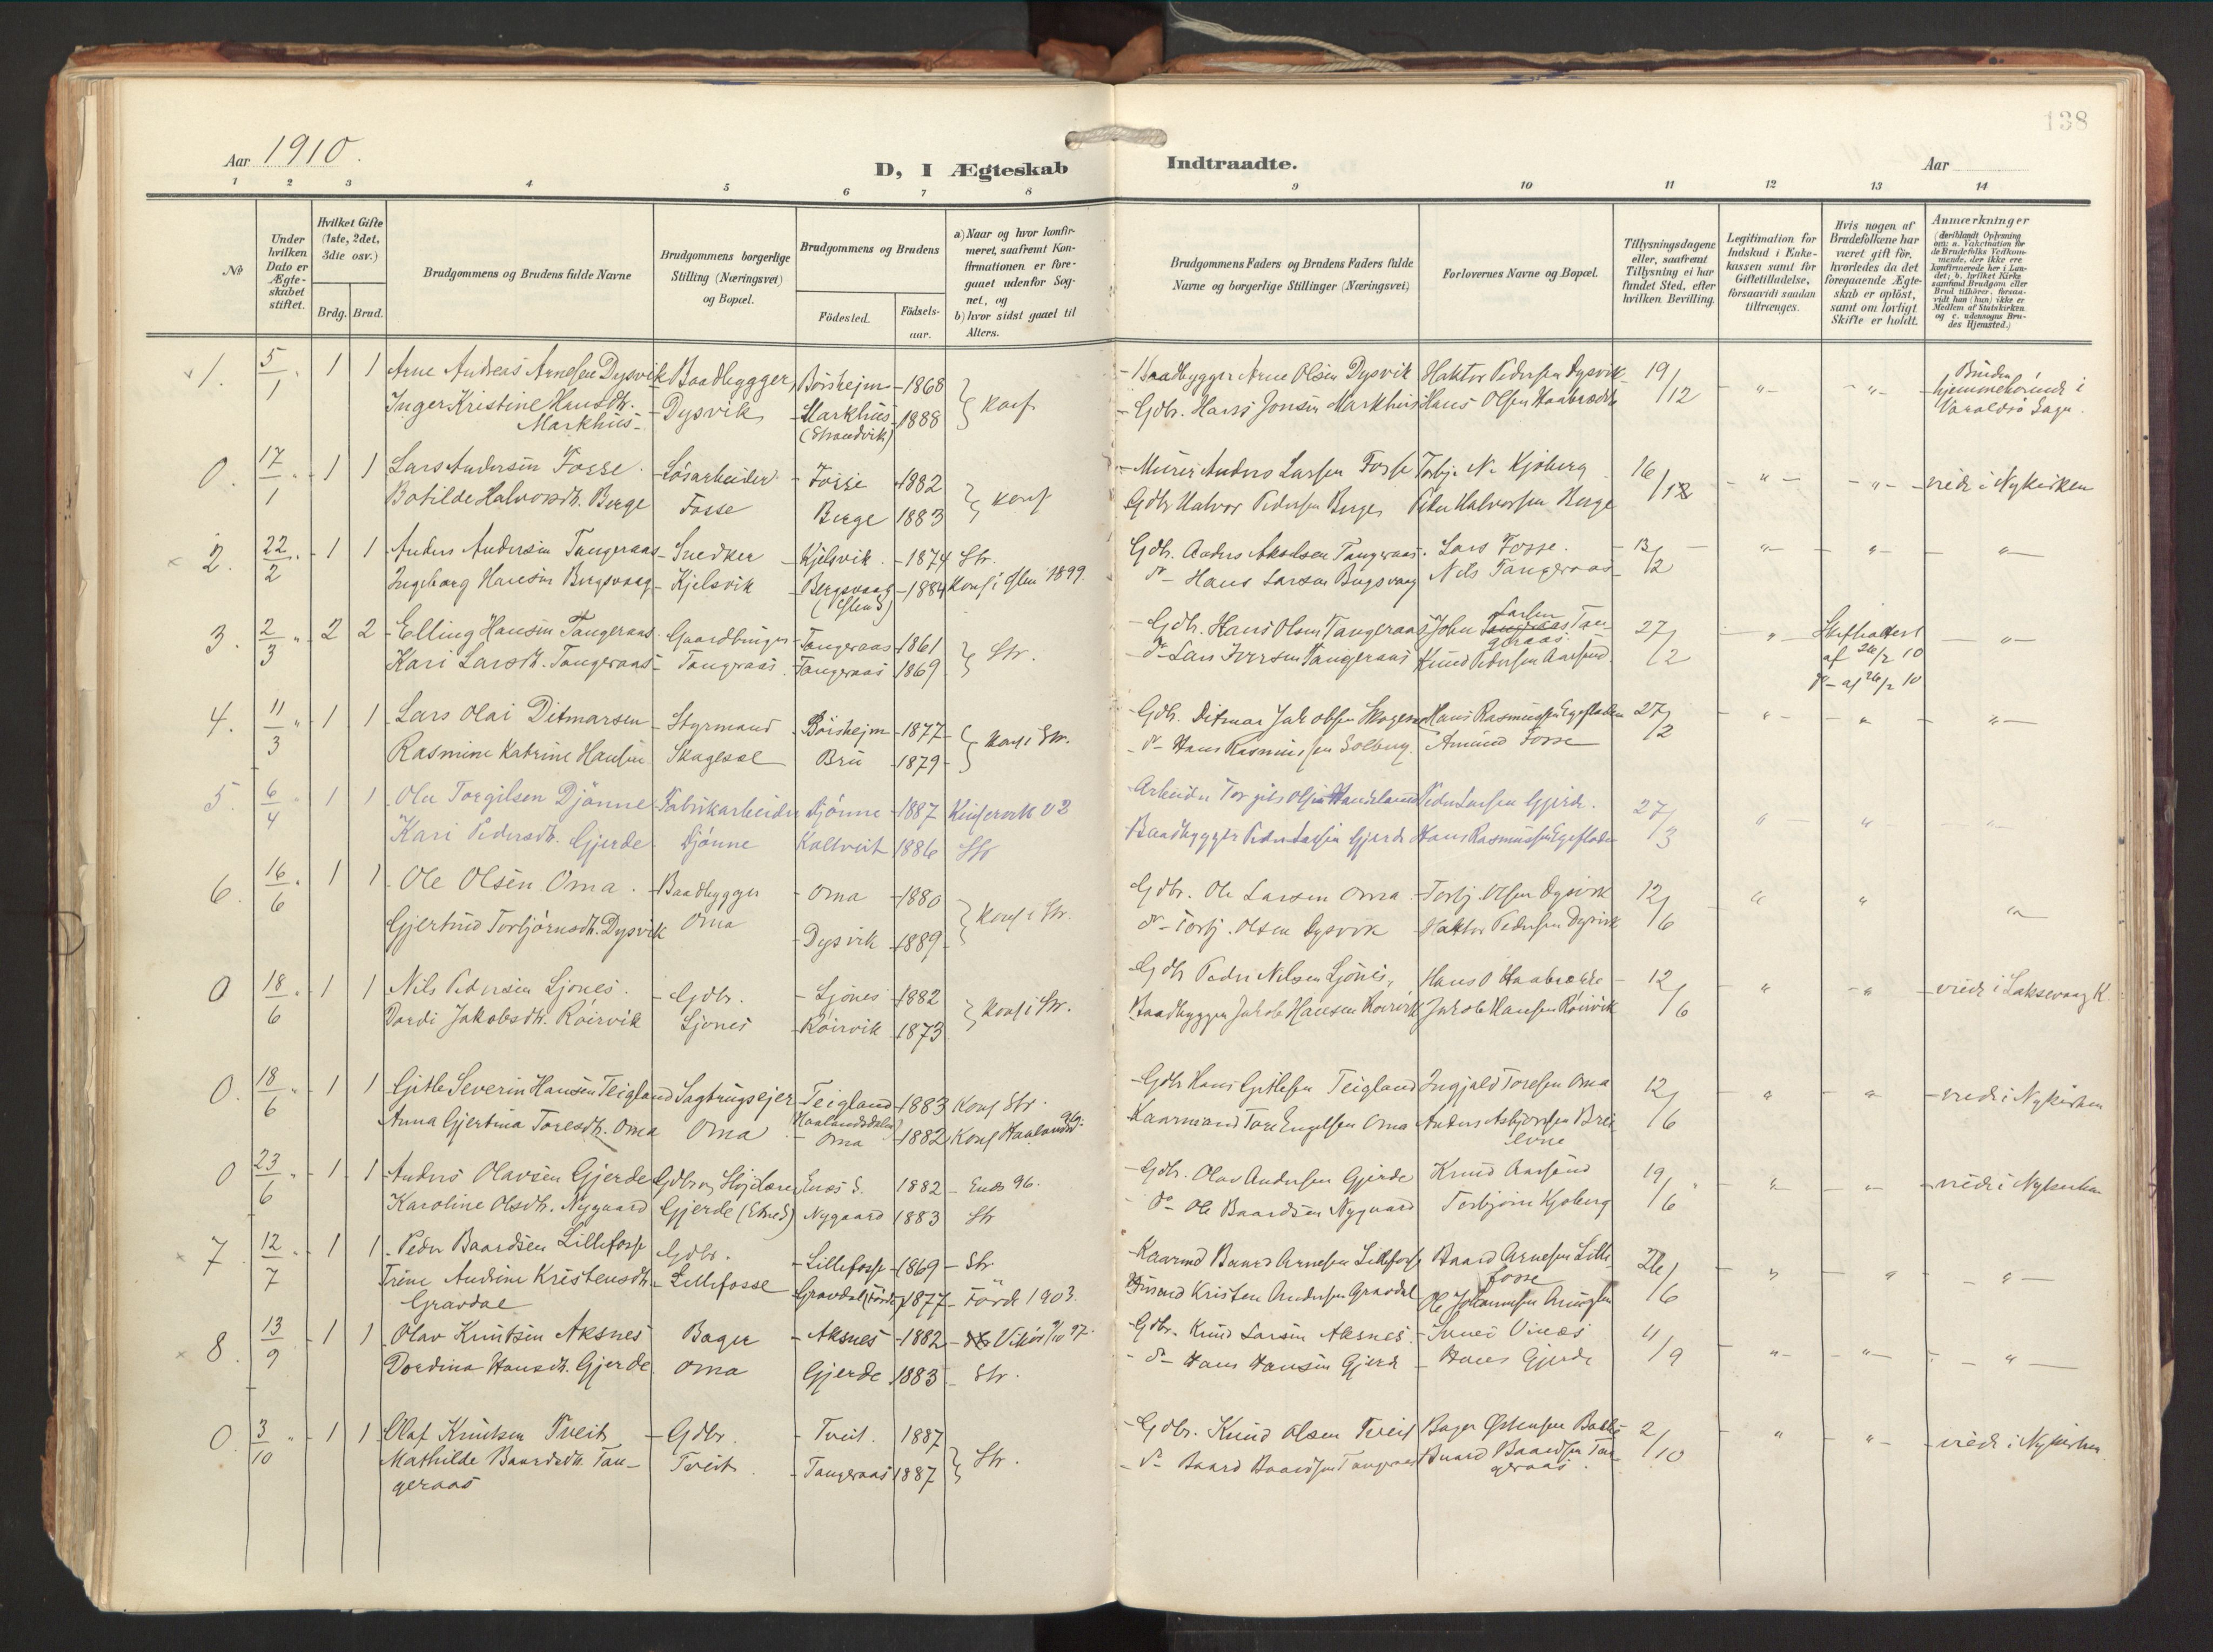 138
Aar 1910.
D, I Ægteskab Indtraadte.
Aar
1 2 3 4 5 6 7 8 9 10 11 12 13 14
No
Under hvilken Dato er Ægteskabet stiftet.
Hvilket Gifte (1ste, 2det, 3die osv.)
Brdg. Brud.
Brudgommens og Brudens fulde Navne
Brudgommens borgerlige Stilling (Næringsvei) og Bopæl.
Brudgommens og Brudens
Födested.
Födselsaar.
a) Naar og hvor konfirmeret, saafremt Konfirmationen er foregaaet udenfor Sognet, og
b) hvor sidst gaaet til Alters.
Brudgommens Faders og Brudens Faders fulde Navne og borgerlige Stillinger (Næringsvei)
Forlovernes Navne og Bopæl.
Tillysningsdagene eller, saafremt Tillysning ei har fundet Sted, efter hvilken Bevilling.
Legitimation for Indskud i Enkekassen samt for Giftetilladelse, forsaavidt saadan tiltrænges.
Hvis nogen af Brudefolkene har været gift för, hvorledes da det foregaaende Ægteskab er oplöst, samt om lovligt Skifte er holdt.
Anmærkninger
(deriblandt Oplysning om: a. Vakcination for de Brudefolks Vedkommende, der ikke ere konfirmerede her i Landet; b. hvilket Kirkesamfund Brudgom eller Brud tilhörer, forsaavidt han (hun) ikke er Medlem af Statskirken og c. udensogns Brudes Hjemsted.)
1. 5/1 1 1 Arne Andreas Arnesen Dysvik Baadbygger, Börshejm 1868 } Konf Baadbygger Arne Olsen Dysvik Haktor Pedersen Dysvik 19/12 " " Bruden hjemmehörende i Varaldsö Sogn.
Inger Kristine Hansdt. Markhus Dysvik Markhus (Strandvik) 1888 Gdbr. Hans Jonsen Markhus Hans Olsen Haabrække
0. 17/1 1 1 Lars Andersen Fosse Lösarbeider Fosse 1882 } Konf Murer Anders Larsen Fosse Torbj. N. Kjöberg 16/12 " " viede i Nykirken
Botilde Halvorsdt. Berge Fosse Berge 1883 Gdbr Halvor Pedersen Berge Peder Halvorsen Berge
2. 22/2 1 1 Anders Andersen Tangeraas Snedker Kjelsvik 1874 Str. Gdb. Anders Akselsen Tangeraas Lars Fosse. 13/2 " " "
Ingeborg Hansdt Bergsvaag Kjelsvik Bergsvaag 1884 Konf i Ølen 1899. do Hans Larsen Bergsvaag Nils Tangeraas
3. 2/3 2 2 Elling Hansen Tangeraas Gaardbruger Tangeraas 1861 } Str. Gdb. Hans Olsen Tangeraas John Larsen Tangeraas 27/2 " Skifteattest af 26/2 10 "
Kari Larsdt. Tangeraas Tangeraas Tangeraas 1869 do Lars Iversen Tangeraas Knud Pedersen Aarsand do af 26/2 10
4. 11/3 1 1 Lars Olai Ditmarsen Styrmand Börshejm 1877 } Konf i Str. Gdb. Ditmar Jakobsen Skogesæl Hans Rasmussen Egefladen 27/2 " " "
Rasmine Katrine Hansen Skogesæl Bru 1879 do Hans Rasmussen Solberg. Amund Fosse
5. 6/4 1 1 Ole Torgilsen Djönne Fabrikarbeider Djönne 1887 Kinservik 02 Arbeider Torgils Olsen Haneland Peder Larsen Gjerde. 27/3 " " "
Kari Pedersdt. Gjerde Djönne Kaltveit 1886 Str Baadbygger Peder Larsen Gjerde Hans Rasmussen Egefladen
6. 16/6 1 1 Ole Olsen Oma. Baadbygger Oma 1880 } Konf i Str. Gdbr. Ole Larsen Oma Torbj. Olsen Dysvik 12/6 " " "
Gjertrud Torbjörnsdt. Dysvik Oma Dysvik 1889 do Torbj. Olsen Dysvik Haktor Pedersen Dysvik
0 18/6 1 1 Nils Pedersen Ljones. Gdbr. Ljones 1882 } Konf i Str. Gdbr Peder Nilsen Ljones, Hans O Haabrække 12/6 " " viede i Laksevaag K.
Dordi Jakobsdt. Röirvik Ljones Röirvik 1873 Baadbygger Jakob Hansen Röirvik Jakob Hansen Röirvik
0. 18/6 1 1 Gitle Severin Hansen Teigland Sagbrugsejer Teigland Haalandsdalen 1883 Konf Str. Gdbr Hans Gitlesen Teigland Ingjald Toresen Oma 12/6 " " viede i Nykirken
Anna Gjertina Toresdt. Oma Oma Oma 1882 Konf Haalandsd. 96 Kaarmand Tore Engelsen Oma Anders Asbjörnsen Breilvne
0 23/6 1 1 Anders Olavsen Gjerde Gdbr og Skipslærer Enæs S. 1882 Enæs 96. Gdbr. Olav Andersen Gjerde Knud Aarsand 19/6 " " viede i Nykirken
Karoline Olsdt. Nygaard Gjerde (Etne S) Nygaard 1883 Str do Ole Baardsen Nygaard Torbjörn Kjöberg
7. 12/7 1 1 Peder Baardsen Lillefosse Gdbr. Lillefosse 1869 Str Kaarmd Baard Arnesen Lillefosse Baard Arnesen Lillefosse 26/6 " " "
Trine Andrine Kristensdt. Gravdal Lillefosse Gravdal (Förde) 1877 Förde 1903. Kristen Andersen Gravdal Ole Johannesen
8. 13/9 1 1 Olav Knutsen Aksnes Bager Aksnes 1882 Vikör 97. Gdbr. Knud Larsen Aksnes Vinæs 4/9 " " "
Dordina Hansdt. Gjerde Oma Gjerde 1883 Str. do Hans Hansen Gjerde Hans Gjerde
0. 3/10 1 1 Olaf Knutsen Tveit Gdbr. Tveit. 1887 } Str. Gdbr. Knud Olsen Tveit Bager Østensen Bakke 2/10 " " viede i Nykirken
Mathilde Baardsdt. Tangeraas Tveit Tangeraas 1887 do Baard Baardsen Tangeraas Baard Baardsen Tangeraas